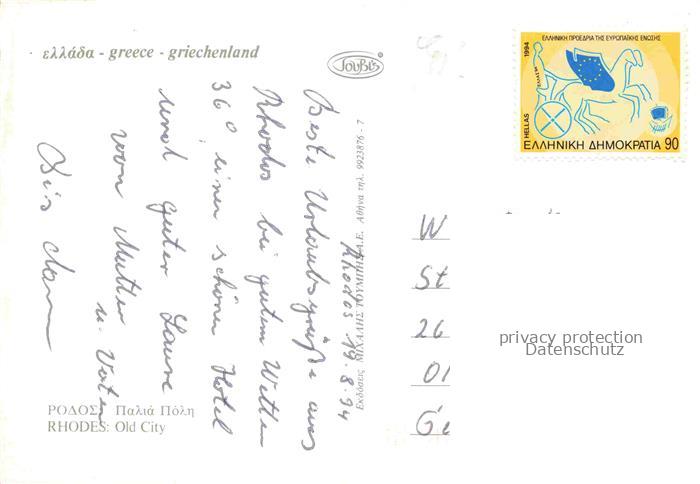 ελλάδα - greece - griechenland
JouBis
Rhodos 19.8.94
Beste Urlaubsgrüße aus
Rhodos bei gutem Wetter
36° einen schönen Hotel
und guter Laune
von Mutter
u. Vater
Bis dann
ΡΟΔΟΣ: Παλιά Πόλη
RHODES: Old City
Εκδόσεις ΜΙΧΑΛΗΣ ΤΟΥΜΠΗΣ Α.Ε. Αθήνα τηλ. 9923876 - 7
ΕΛΛΗΝΙΚΗ ΠΡΟΕΔΡΙΑ ΤΗΣ ΕΥΡΩΠΑΪΚΗΣ ΕΝΩΣΗΣ
1994
HELLAS
ΕΛΛΗΝΙΚΗ ΔΗΜΟΚΡΑΤΙΑ 90
W
St
26
01
Ge
privacy protection
Datenschutz